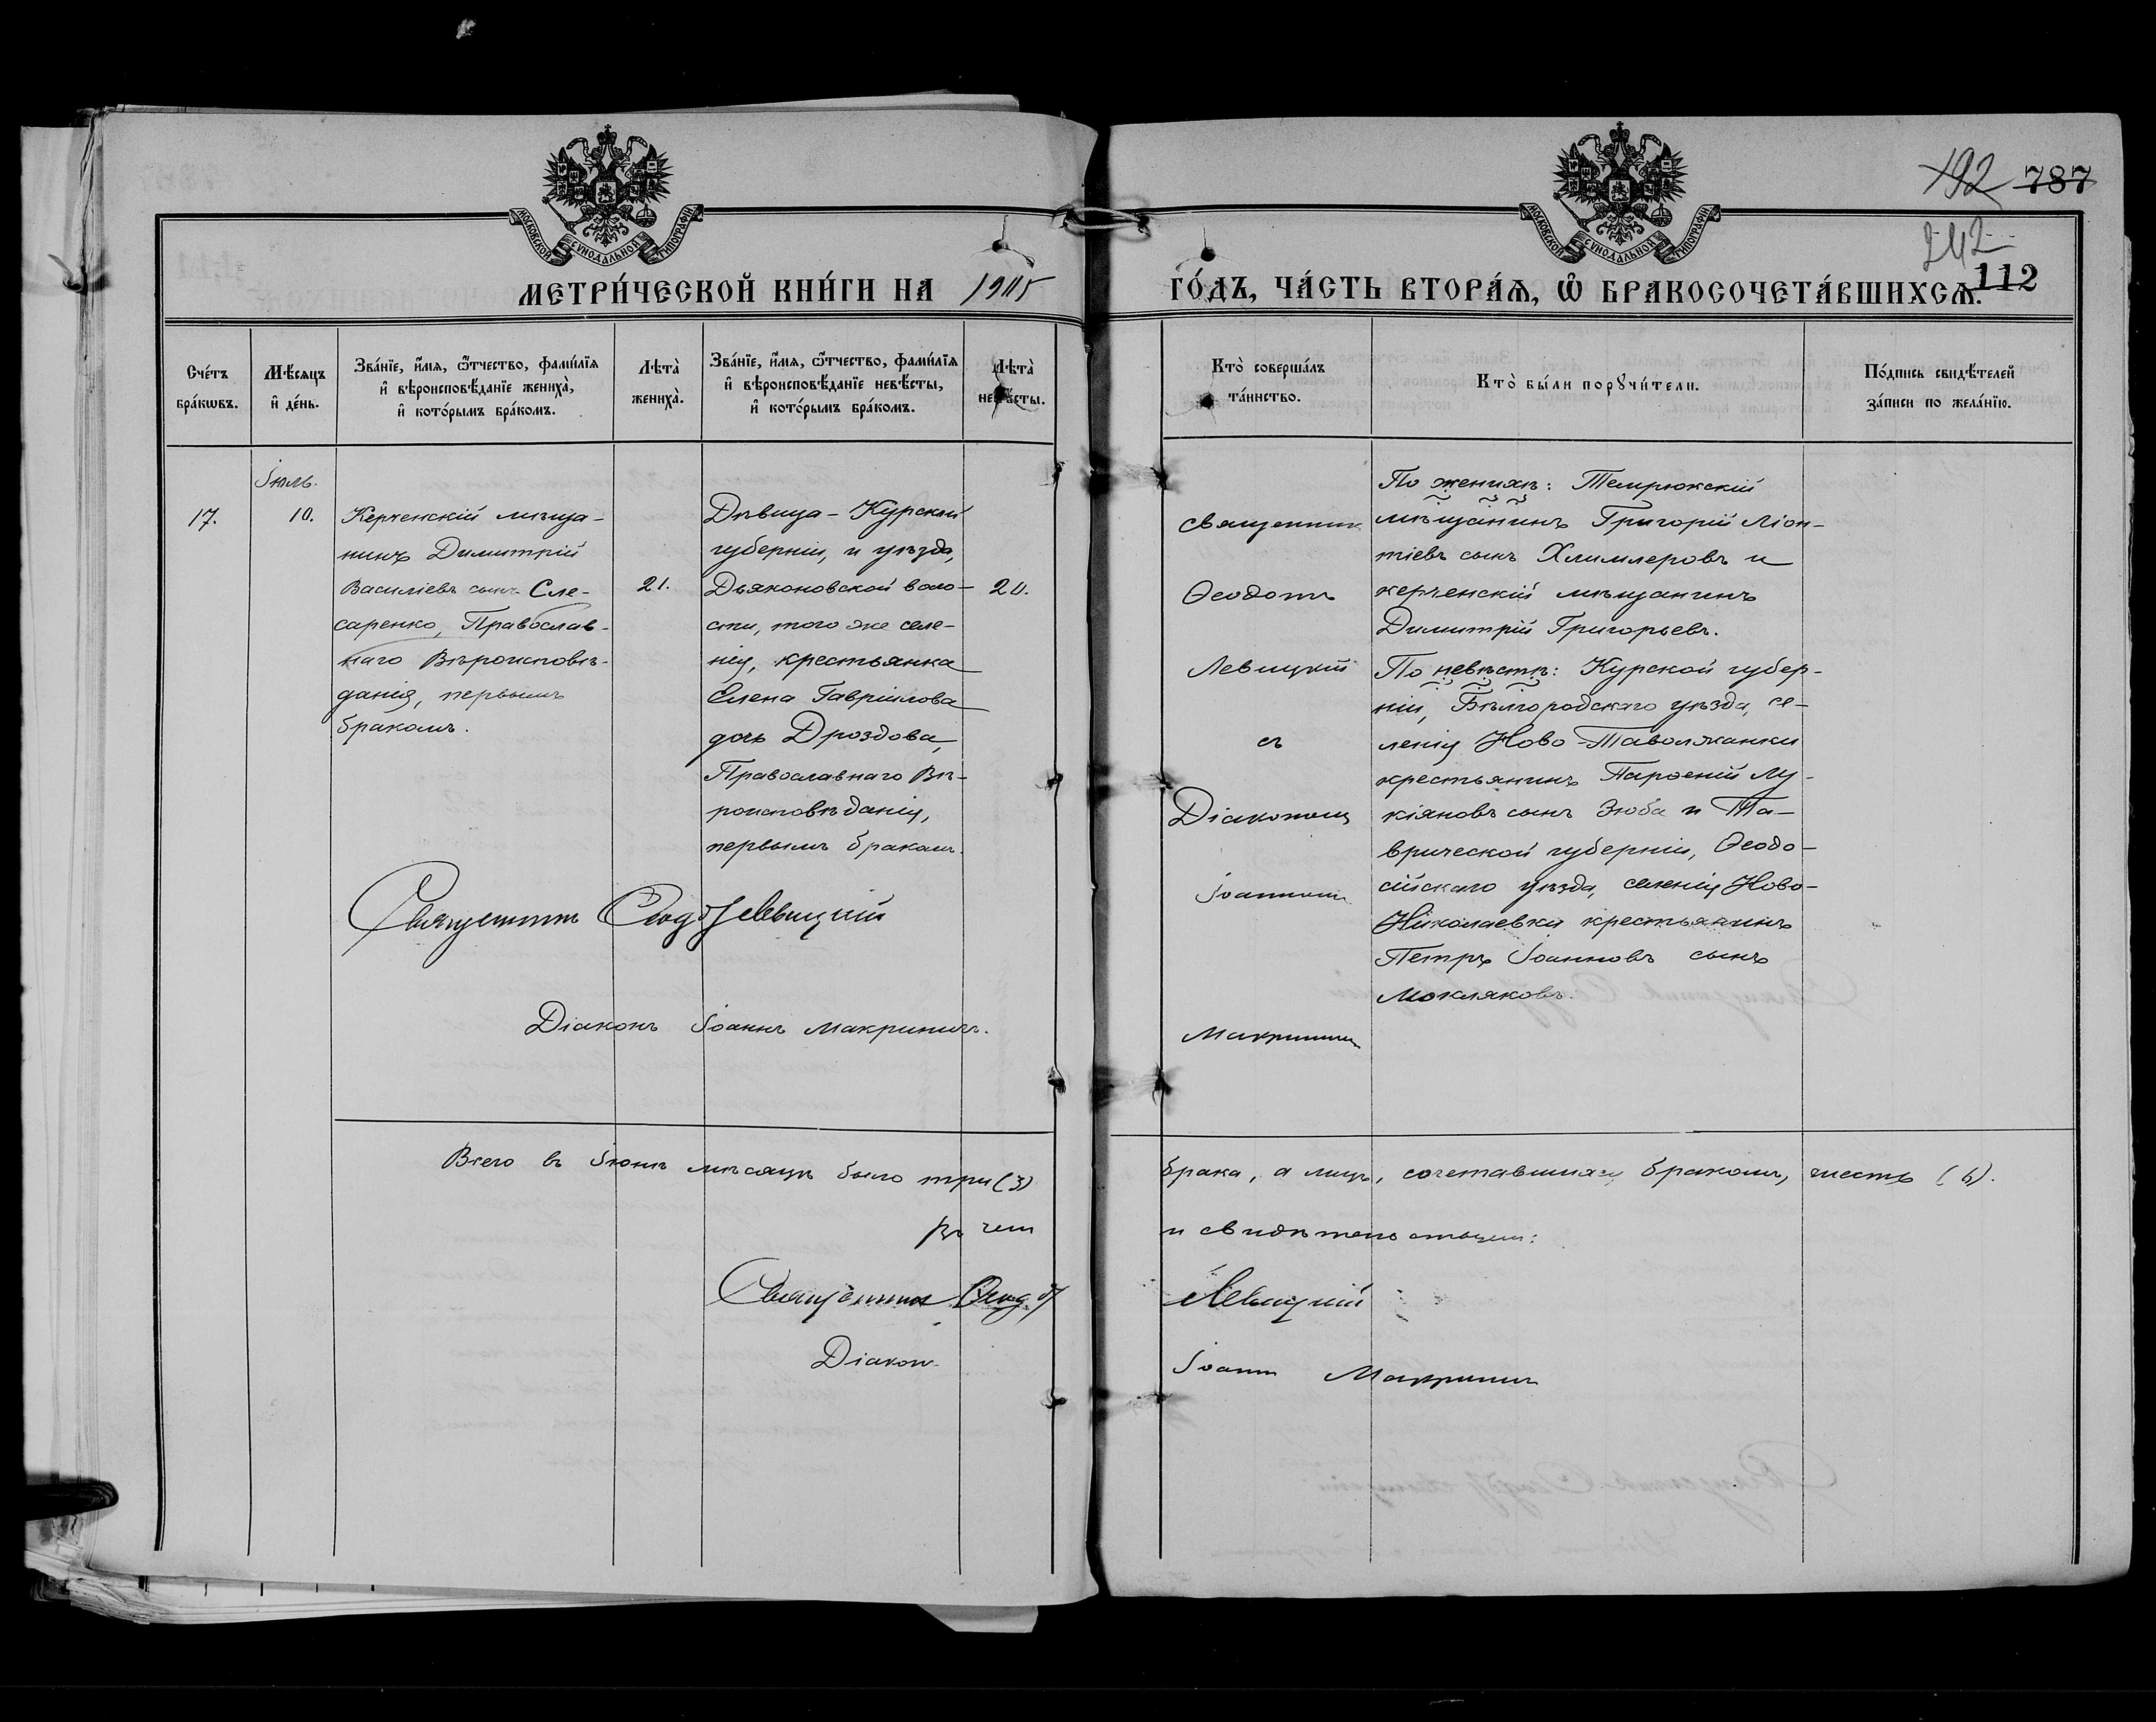 192 787
242
112
МОСКОВСКОЙ СѴНОДАЛЬНОЙ ТИПОГРАФІИ
МОСКОВСКОЙ СѴНОДАЛЬНОЙ ТИПОГРАФІИ
МЕТРИ́ЧЕСКОЙ КНИ́ГИ НА 1915
ГО́ДЪ, ЧА́СТЬ ВТОРА́Ѧ, Ѽ БРАКОСОЧЕТА́ВШИХСѦ.
Сче́тъ
бра́кѡвъ.
Мѣ́сяцъ
и҆ де́нь.
Зва́нїе, и҆́мя, ѻ҆́тчество, фами́лїя
и҆ вѣроисповѣ́данїе жениха̀,
и҆ кото́рымъ бра́комъ.
Лѣта̀
жениха̀.
Зва́нїе, и҆́мя, ѻ҆́тчество, фами́лїя
и҆ вѣроисповѣ́данїе невѣ́сты,
и҆ кото́рымъ бра́комъ.
Лѣта̀
невѣ́сты.
Кто̀ соверша́лъ
та́инство.
Кто̀ бы́ли порꙋчи́тели.
По́дпись свидѣ́телей
за́писи по жела́нїю.
Іюль.
17.
10.
Керченскій мѣща-
нинъ Димитрій
Василіевъ сынъ Сле-
саренко, Православ-
наго Вѣроисповѣ-
данія, первымъ
бракомъ.
21.
Дѣвица - Курской
губерніи, и уѣзда,
Дьяконовской воло-
сти, того же селе-
нія, крестьянка
Елена Гавріилова
дочь Дроздова,
Православнаго Вѣ-
роисповѣданія,
первымъ бракомъ.
20.
Священникъ
Ѳеодотъ
Левицкій
съ
Діакономъ
Іоанномъ
Макринымъ
По женихѣ: Темрюкскій
мѣщанинъ Григорій Ліон-
тіевъ сынъ Хлимлеровъ и
керченскій мѣщанинъ
Димитрій Григорьевъ.
По невѣстѣ: Курской губер-
ніи, Бѣлгородскаго уѣзда, се-
ленія Ново-Таволжанки
крестьянинъ Парѳеній Лу-
кіяновъ сынъ Зюба и Та-
врической губерніи, Ѳеодо-
сійскаго уѣзда, селенія Ново-
Николаевки крестьянинъ
Петръ Іоанновъ сынъ
Мокляковъ.
Священникъ Ѳеодотъ Левицкій
Діаконъ Іоаннъ Макринъ.
Всего въ Іюнѣ мѣсяцѣ было три (3)
брака, а лицъ, сочетавшихся бракомъ, шесть (6).
въ чемъ
и свидѣтельствуемъ:
Священникъ Ѳеодотъ
Левицкій
Діаконъ
Іоаннъ Макринъ